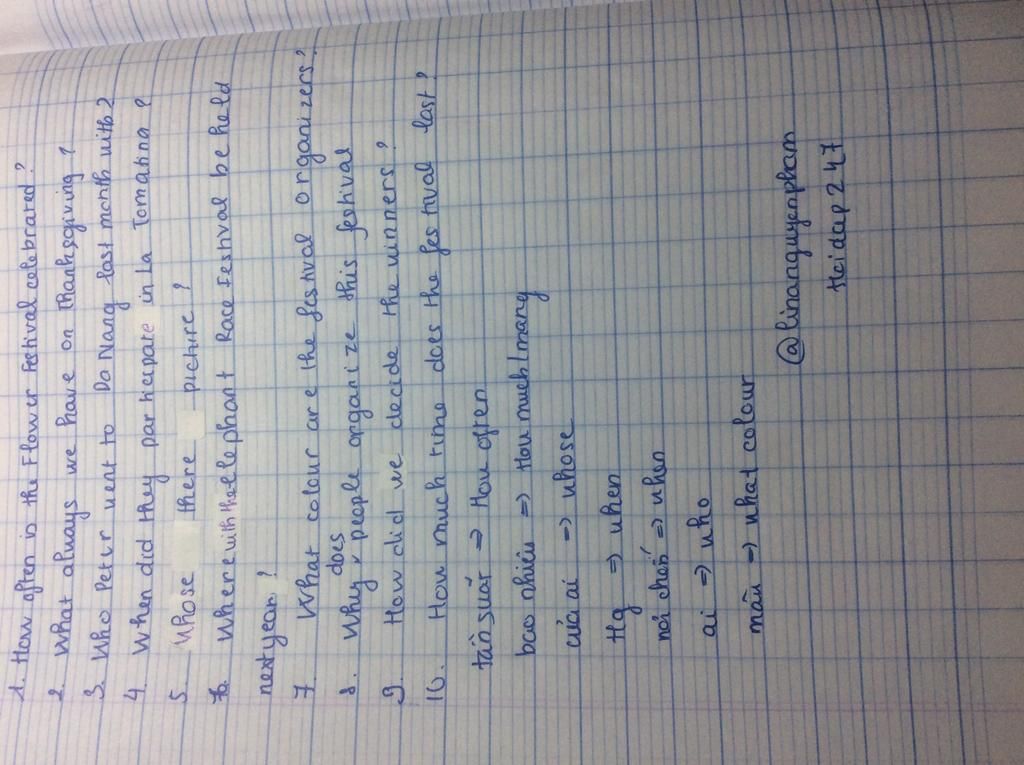 1. How often is the Flower Festival celebrated?
2 What always we have on Thanksgiving?
3. Who Peter went to Da Nang last month with?
4 When did they participate in La Tomatina?
5. Whose there picture?
Where with the elephant Race Festival be held
next year?
7 What colour are the festival organizers?
8. Why does people organize this festival
9 How did we decide the winners?
10. How much time does the festival last?
tần suất => How often
bao nhiêu => How much/many
của ai => whose
ttg => when
nơi chốn => when
ai => who
màu => what colour
@linanguyenpham
tuidap247